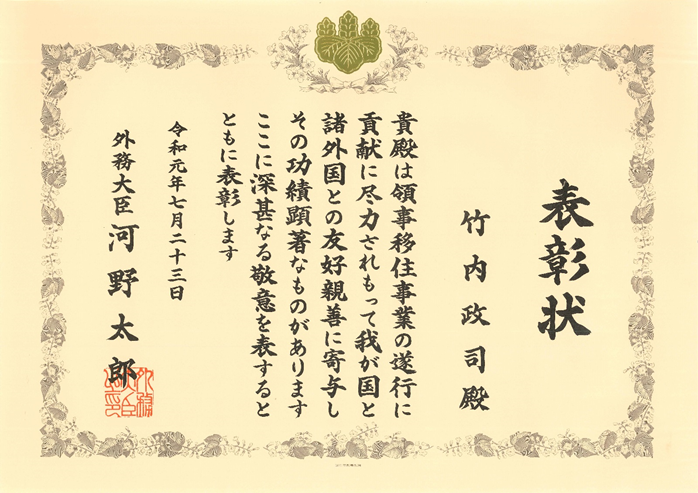 表彰状
竹内政司殿
貴殿は領事移住事業の遂行に
貢献に尽力されもって我が国と
諸外国との友好親善に寄与し
その功績顕著なものがあります
ここに深甚なる敬意を表すると
ともに表彰します
令和元年七月二十三日
外務大臣 河野太郎